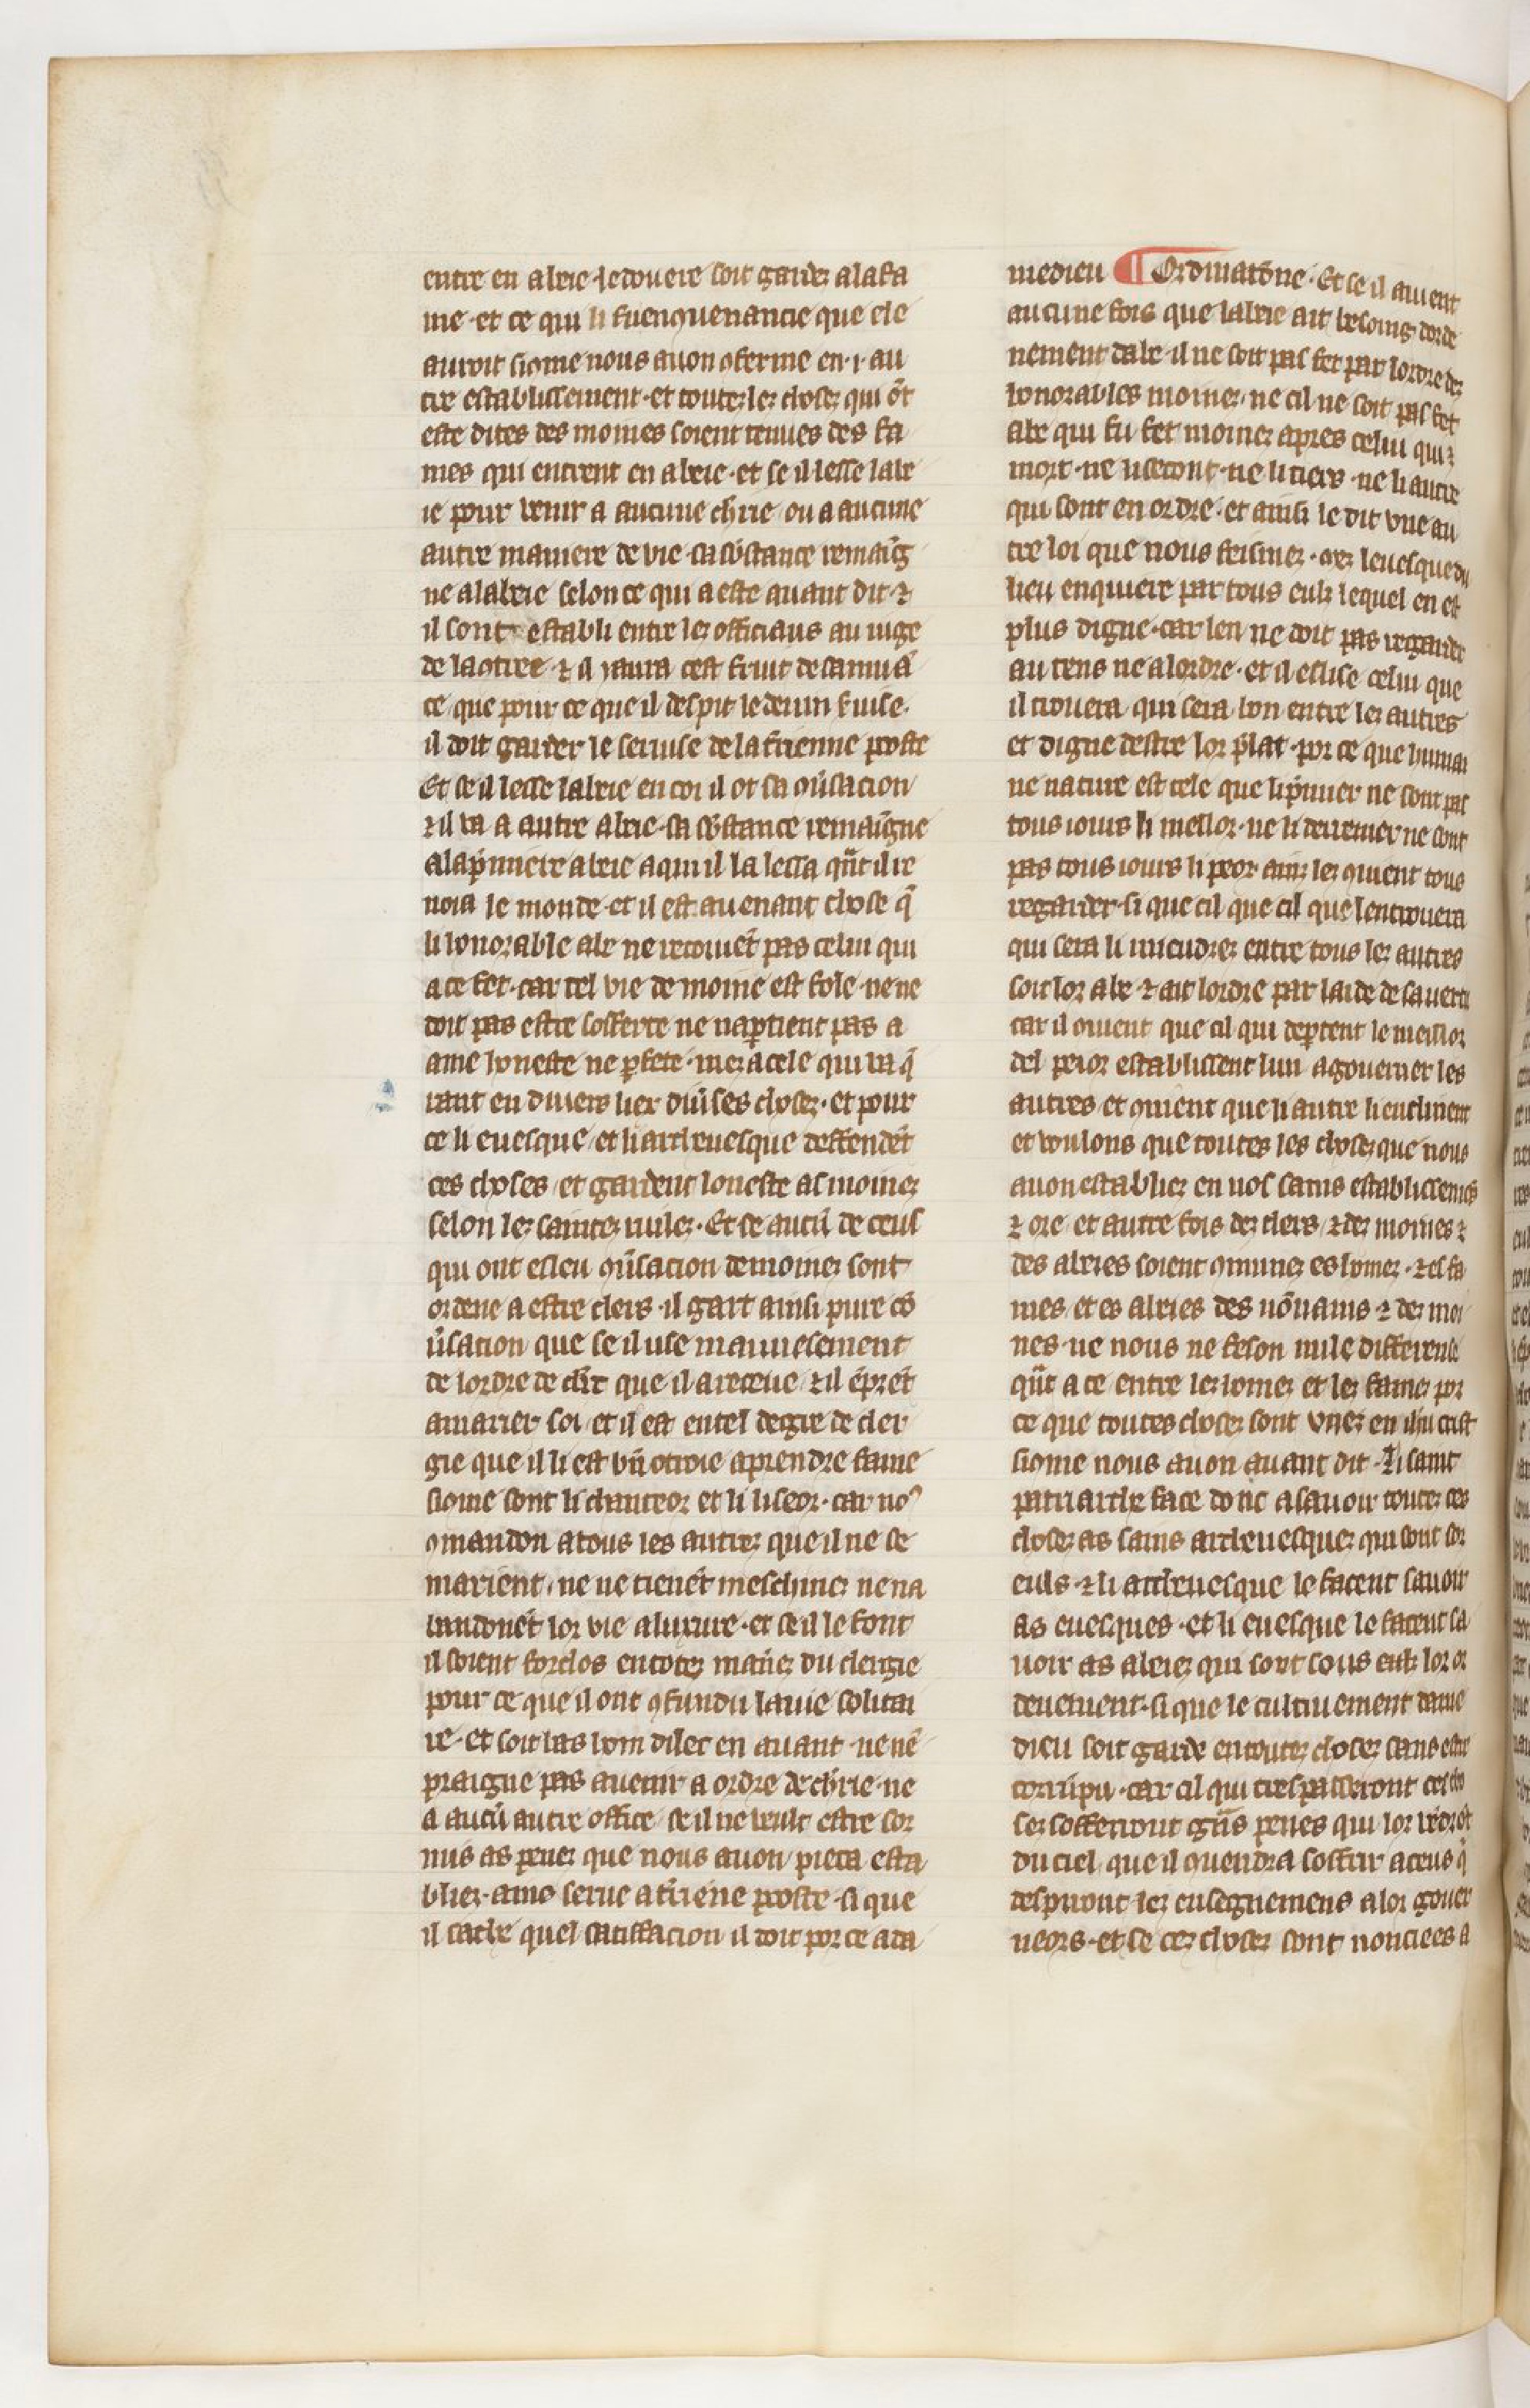 entre en abeie le douere soit gardez a la fa
me · et ce qui li fu en ꝯuenancie que ele
auroit si ꝯme nous auon ꝯferme en · i · au
tre establissement · et toutez lez chosez qui ōt
este dites des moines soient tenues des fa
mes qui entrent en abeie · et se il lesse labe
ie pour venir a aucune ch'rie ou a aucune
autre maniere de vie · sa sōstance remaīg
ne a labeie selon ce qui a este auant dit ⁊
il sont establi entre lez officiaus au iuge
de la ꝯtree ⁊ il i aura cest fruit de sa muā
ce que pour ce que il despit le deuin seruise ·
il doit garder le seruise de la t'rienne poste
Et se il lesse labeie en coi il ot sa ꝯu'sacion
⁊ il va a autre abeie · sa sōstance remaigne
a la p'miere abeie a qui il la lessa qn̄t il re
noia le monde · et il est auenant chose q̄
li honorable abe ne recoiuēt pas celui qui
a ce fet · car tel vie de moine est fole · ne ne
doit pas estre sofferte ne napꝑtient pas a
ame honeste ne ꝑfete · mez a cele qui va q̄
rant en diuers liex diu'ses chosez · et pour
ce li euesque et li archeuesque deffendēt
ces choses et gardent loneste as moinez
selon lez saintez riulez · Et se aucū de ceus
qui ont esleu ꝯu'sacion de moinez sont
ordene a estre clers · il gart ainsi pure cō
u'sacion que se il use mauuesement
de lordre de cl'rc que il a receue ⁊ il ēprēt
a marier soi et il est en tel degre de cler
gie que il li est bn̄ otroie a prendre fame
si ꝯme sont li chanteor et li liseor · car noꝰ
ꝯmandon a tous les autrez que il ne se
marient · ne ne tienēt meschinez ne na
bandonēt lor vie a luxure · et se il le font
il soient forclos en totez man'ez du clergie
pour ce que il ont ꝯfundu la vie solitai
re · et soit las hom dilec en auant · ne nē
praigne pas a uenir a ordre de ch'rie · ne
a aucū autre office se il ne veult estre sor
mis as penez que nous auon pieca esta
bliez · ains serue a t'riene poste · si que
il sache quel satiffacion il doit por ce a da
medieu ¶ Ordinatōne · Et se il auient
aucune fois que labeie ait besoing dorde
nement dabe · il ne soit pas fet par lordre dez
honorables moinez · ne cil ne soit pas fet
abe qui fu fet moinez apres celui qui ⁊
mort · ne li secont · ne li tiers · ne li autre
qui sont en ordre · et ainsi le dit vne au
tre loi que nous feismez · mez leuesque du
lieu enquiere par tous eulz lequel en est
plus digne · car len ne doit pas regarder
au tens ne a lordre · et il eslise celui que
il trouera qui sera bon entre lez autres
et digne destre lor p̄lat · por ce que humai
ne nature est tele que li p'mier ne sont pas
tous iours li mellor · ne li derrenier ne sont
pas tous iours li peor · ainz lez ꝯuient tous
regarder · si que cil que cil que len trouera
qui sera li mieudrez entre tous lez autres
soit lor abe ⁊ ait lordre par laide de sa uertu
car il ꝯuient que cil qui deꝑtent le meillor
del peior establissent lun a gouerner les
autres et ꝯuiēnt que li autre li enclinent
et voulons que toutes les chosez que nous
auon establiez en nos sains establissemēs
⁊ ore et autre fois dez clers ⁊ dez moines ⁊
des abeies soient ꝯmunez es homez · ⁊ es fa
mes et es abeies des nōnains ⁊ dez moi
nes · ne nous ne feson nule difference
qn̄t a ce entre lez homez et lez famez por
ce que toutes chosez sont vnez en ihu crist
si ꝯme nous auon auant dit · Li saint
patriarche face donc a sauoir toutez ces
chosez as sains archeuesquez qui sont soz
euls · ⁊ li archeuesque le facent sauoir
as euesques · et li euesque le facent sa
uoir as abeiez qui sont sous eulz lor or
denement · si que le cultiuement dame
dieu soit garde en toutez chosez sans estre
corrūpu · car cil qui trespasseront ces cho
sez sofferront gn̄s penes qui lor vēdrōt
du ciel que il ꝯuendra soffrir a ceus q̄
despiront lez ensegnemens a lor gouer
neors · et se cez chosez sont nonciees a